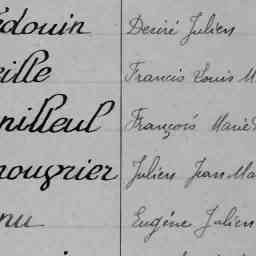 édouin Désiré Julien
eille Francis Louis M
nilleul François Marie
nougrier Julien Jean Ma
nu Eugène Julien